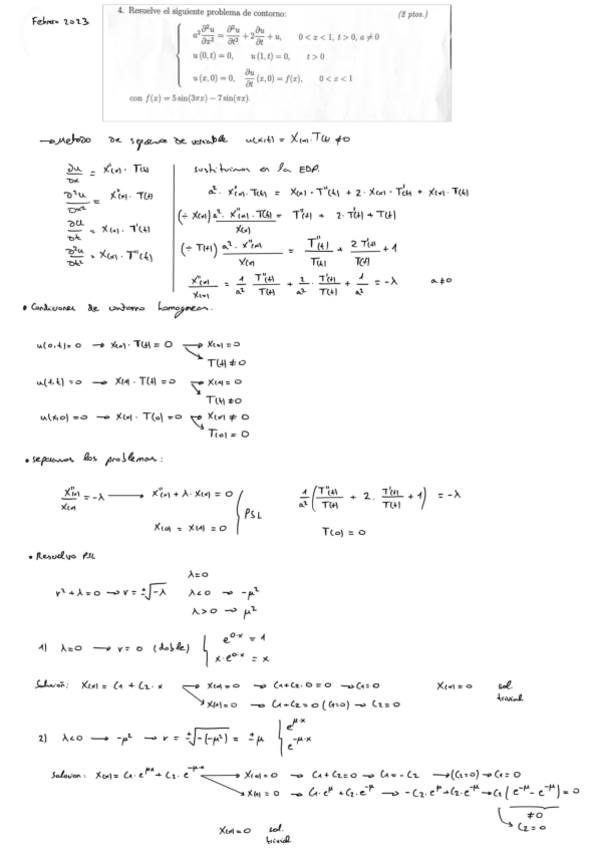 Febrero 2023
4. Resuelve el siguiente problema de contorno: (2 ptos.)
a² ∂²u/∂x² = ∂²u/∂t² + 2 ∂u/∂t + u, 0 < x < 1, t > 0, a ≠ 0
u(0,t) = 0, u(1,t) = 0, t > 0
u(x,0) = 0, ∂u/∂t (x,0) = f(x), 0 < x < 1
con f(x) = 5 sin(3πx) − 7 sin(πx).
→ Metodo de de variable u(x,t) = X(x)·T(t) ≠ 0
∂u/∂x = X'(x)·T(t)
∂²u/∂x² = X''(x)·T(t)
∂u/∂t = X(x)·T'(t)
∂²u/∂t² = X(x)·T''(t)
sustituimos en la EDP.
a²·X''(x)·T(t) = X(x)·T''(t) + 2·X(x)·T'(t) + X(x)·T(t)
(÷ X(x)) a²·X''(x)·T(t)/X(x) = T''(t) + 2·T'(t) + T(t)
(÷ T(t)) a²·X''(x)/X(x) = T''(t)/T(t) + 2T'(t)/T(t) + 1
X''(x)/X(x) = 1/a² T''(t)/T(t) + 2/a²·T'(t)/T(t) + 1/a² = -λ a≠0
• Condiciones de contorno homogneas.
u(0,t)=0 → X(0)·T(t)=0 → X(0)=0
T(t)≠0
u(1,t)=0 → X(1)·T(t)=0 → X(1)=0
T(t)≠0
u(x,0)=0 → X(x)·T(0)=0 → X(x)≠0
T(0)=0
• separamos los problemas:
X''(x)/X(x) = -λ → X''(x)+λ·X(x)=0 1/a² (T''(t)/T(t) + 2·T'(t)/T(t) + 1) = -λ
X(0)=X(1)=0 PSL T(0)=0
• Resuelvo PSL
λ=0
r²+λ=0 → r=±√-λ λ<0 → -μ²
λ>0 → μ²
1) λ=0 → r=0 (doble) e^(0·x)=1
x·e^(0·x)=x
Solución: X(x)=C1+C2·x → X(0)=0 → C1+C2·0=0 → C1=0 X(x)=0 sol trivial
X(1)=0 → C1+C2=0 (C1=0) → C2=0
2) λ<0 → -μ² → r=±√-(-μ²)=±μ e^(μ·x)
e^(-μ·x)
Solucion: X(x)=C1·e^(μx)+C2·e^(-μx) → X(0)=0 → C1+C2=0 → C1=-C2 → (C2=0) → C1=0
X(1)=0 → C1·e^μ+C2·e^(-μ) → -C2·e^μ+C2·e^(-μ) → C2(e^(-μ)-e^(-μ))=0
≠0
C2=0
X(x)=0 sol. trivial